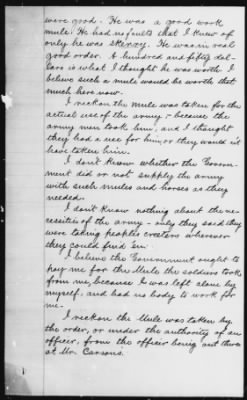 were good. He was a good work
mule. He had no faults that I knew of
only he was skerry. He was in real
good order. A hundred and fifty dol-
lars is what I thought he was worth. I
believe such a mule would be worth that
much here now.
I reckon the mule was taken for the
actual use of the army - because the
army men took him, and I thought
they had a use for him or they would n't
have taken him.
I don't know whether the Govern-
ment did or not supply the army
with such mules and horses as they
needed.
I don't know nothing about the ne-
cessities of the army - only they said they
were taking peoples creeters wherever
they could find 'em.
I believe the Government ought to
pay me for this Mule the soldiers took
from me, because I was left alone by
myself, and had no body to work for
me.
I reckon the Mule was taken by
the order, or under the authority of an
officer, from the officer being out there
at Mr. Carson's.